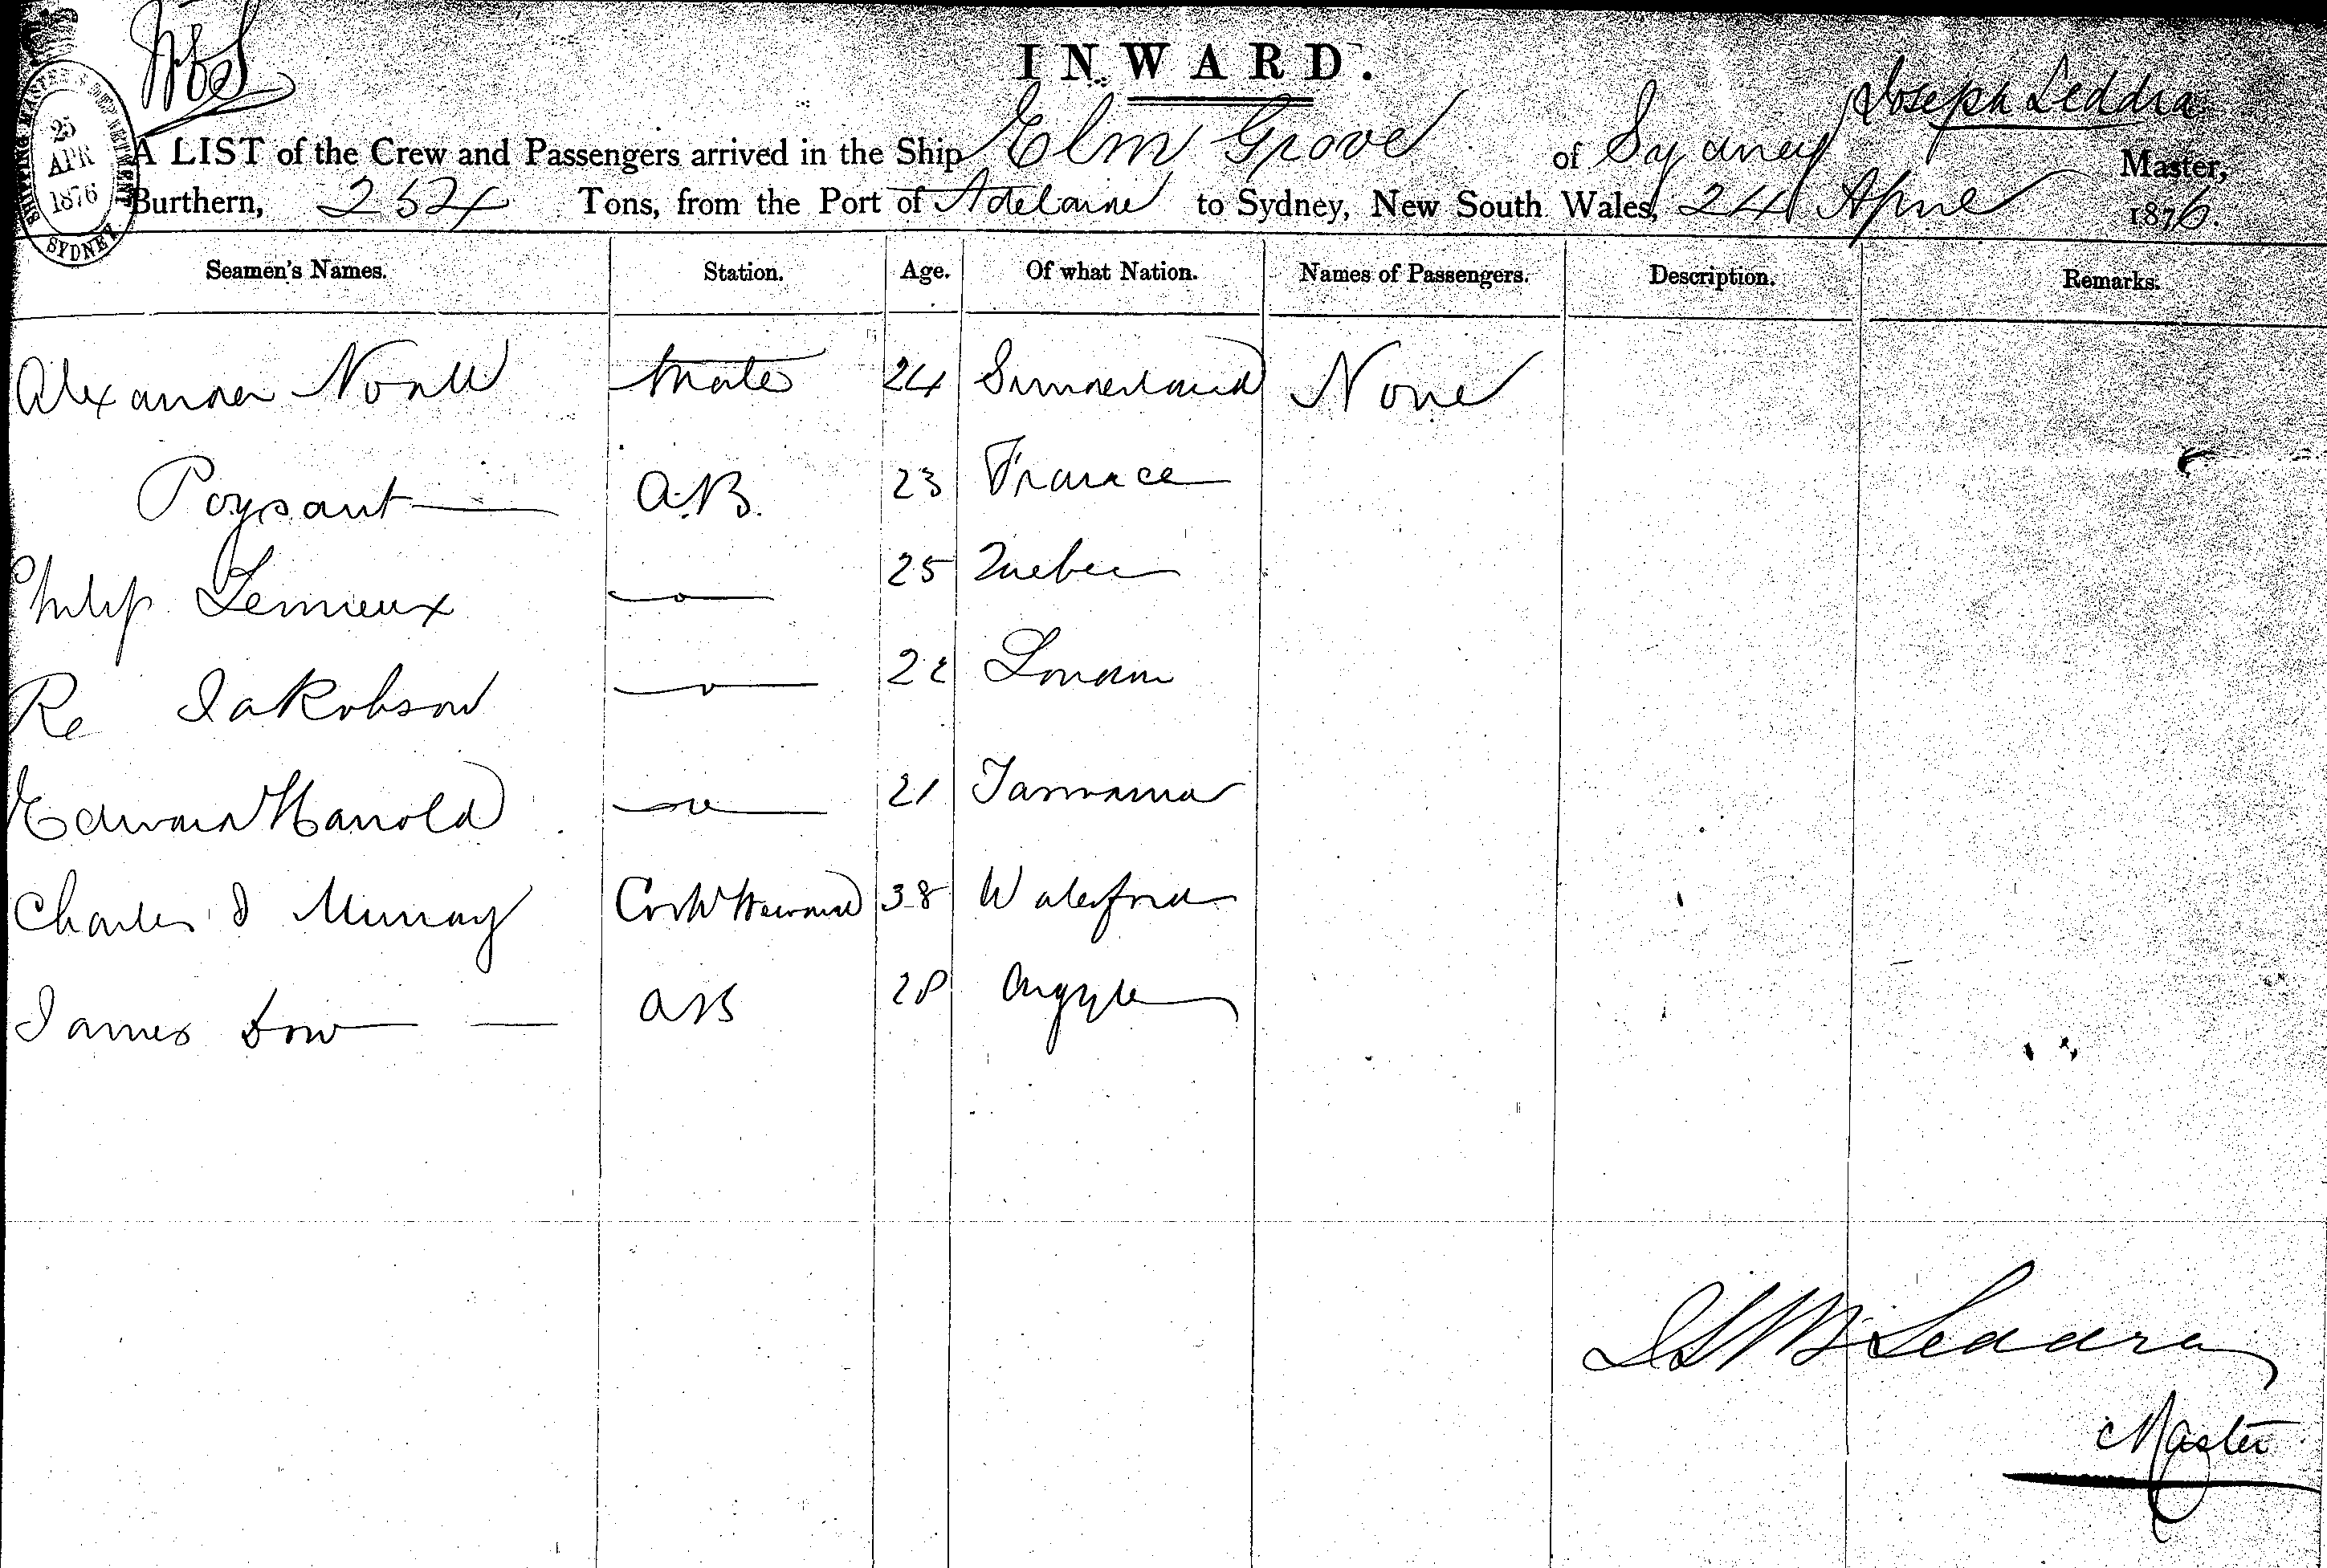 INWARD.
Joseph Leddra
A LIST of the Crew and Passengers arrived in the Ship Elm Grove of Sydney Master,
Burthern, 252 4 Tons, from the Port of Adelaide to Sydney, New South Wales, 24 April 1876.
SHIPPING MASTER'S DEPARTMENT
25
APR
1876
SYDNEY
Seamen's Names. Station. Age. Of what Nation. Names of Passengers. Description. Remarks.
Alexander Mate 24 Sunderland None
Poysant A.B. 23 France
Philip Lemieux 25 Quebec
Re Jakobson 22 London
Edward Harrold 21 Tasmania
Charles J Murray Cook Steward 38 Waterford
James Dow AB 28 Argyle
Leddra
Master